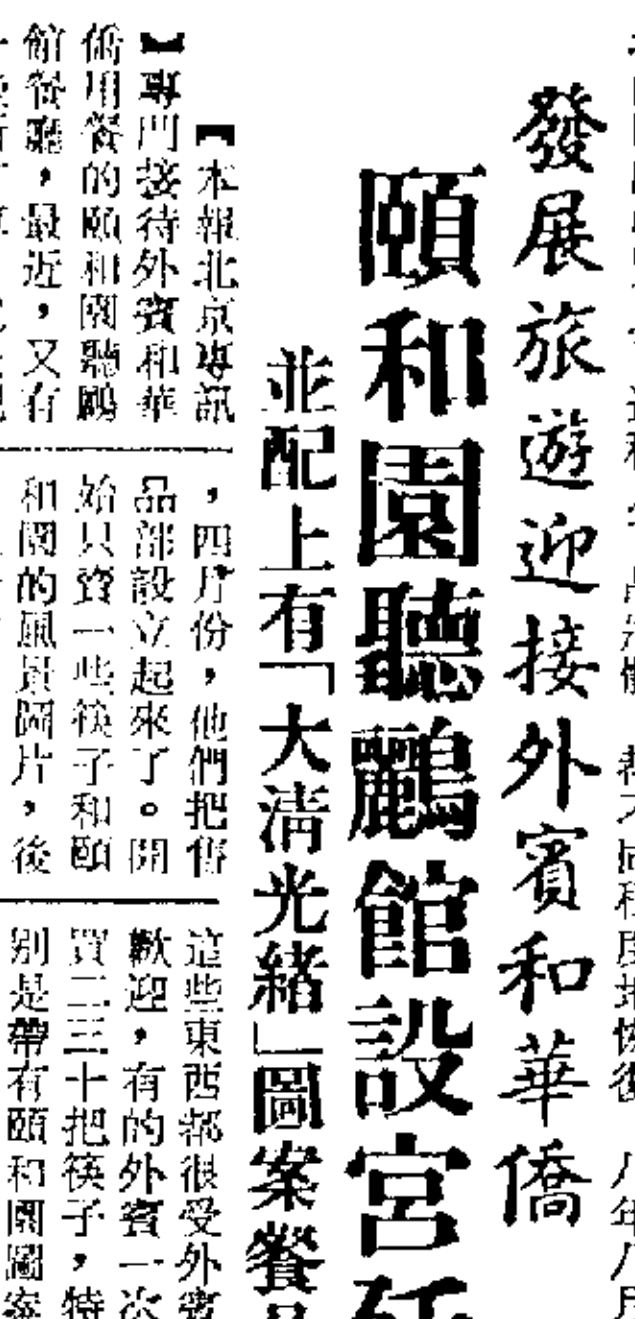 發展旅遊迎接外賓和華僑
頤和園聽鸝館設宮
並配上有「大清光緒」圖案餐
【本報北京專訊
】專門接待外賓和華
僑用餐的頤和園聽鸝
館餐廳，最近，又有
，四月份，他們把售
品部設立起來了。開
始只賣一些筷子和頤
和園的風景圖片，後
這些東西都很受外賓
歡迎，有的外賓一次
買二三十把筷子，特
別是帶有頤和園圖案